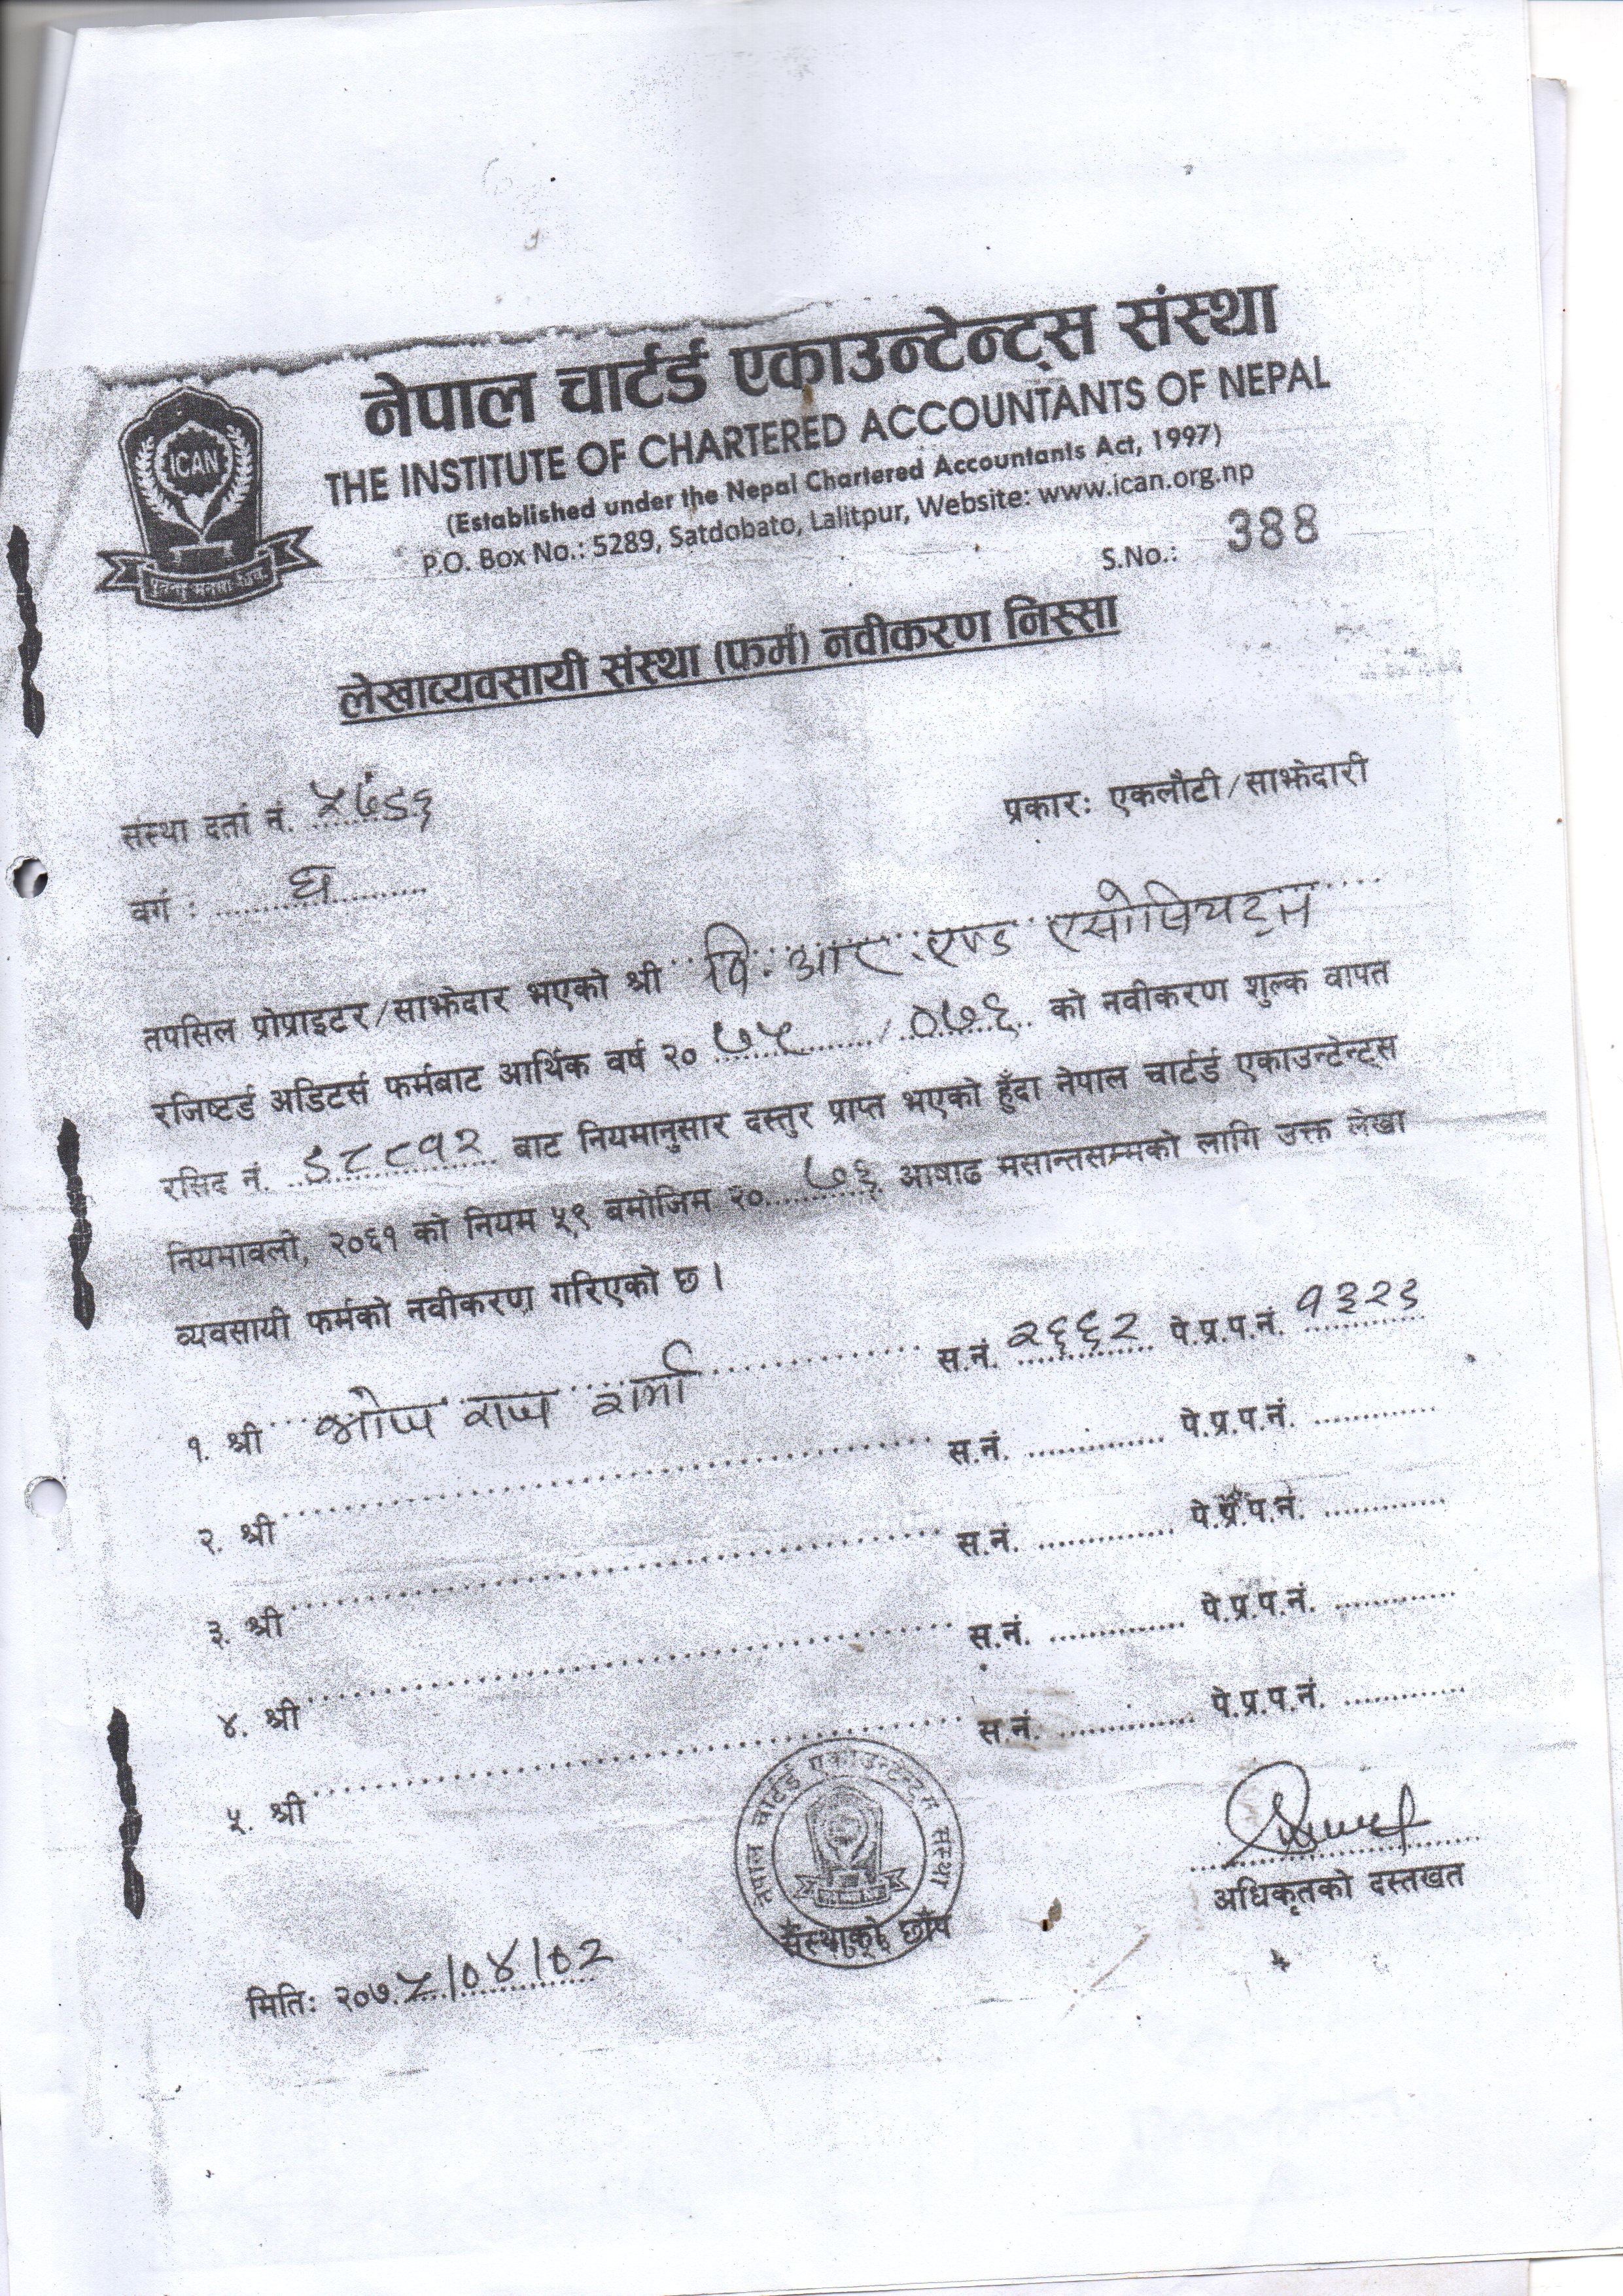 नेपाल चार्टर्ड एकाउन्टेन्ट्स संस्था
THE INSTITUTE OF CHARTERED ACCOUNTANTS OF NEPAL
(Established under the Nepal Chartered Accountants Act, 1997)
P.O. Box No.: 5289, Satdobato, Lalitpur, Website: www.ican.org.np
ICAN
S.No.: 388
लेखाव्यवसायी संस्था (फर्म) नवीकरण निस्सा
संस्था दर्ता नं.
प्रकारः एकलौटी/साझेदारी
वर्ग : घ
तपसिल प्रोप्राइटर/साझेदार भएको श्री आर. एण्ड एसोसियट्स
रजिष्टर्ड अडिटर्स फर्मबाट आर्थिक वर्ष २० ७५ / ०७६ को नवीकरण शुल्क वापत
रसिद नं. बाट नियमानुसार दस्तुर प्राप्त भएको हुँदा नेपाल चार्टर्ड एकाउन्टेन्ट्स
नियमावली, २०६१ को नियम ५९ बमोजिम २० ७६ आषाढ मसान्तसम्मको लागि उक्त लेखा
व्यवसायी फर्मको नवीकरण गरिएको छ ।
१. श्री राज शर्मा स.नं. २६६२ पे.प्र.प.नं.
२. श्री स.नं. पे.प्र.प.नं.
३. श्री स.नं. पे.प्र.प.नं.
४. श्री स.नं. पे.प्र.प.नं.
५. श्री स.नं. पे.प्र.प.नं.
नेपाल चार्टर्ड एकाउन्टेन्ट्स संस्था
संस्थाको छाप
अधिकृतको दस्तखत
मितिः २०७५/०४/०२